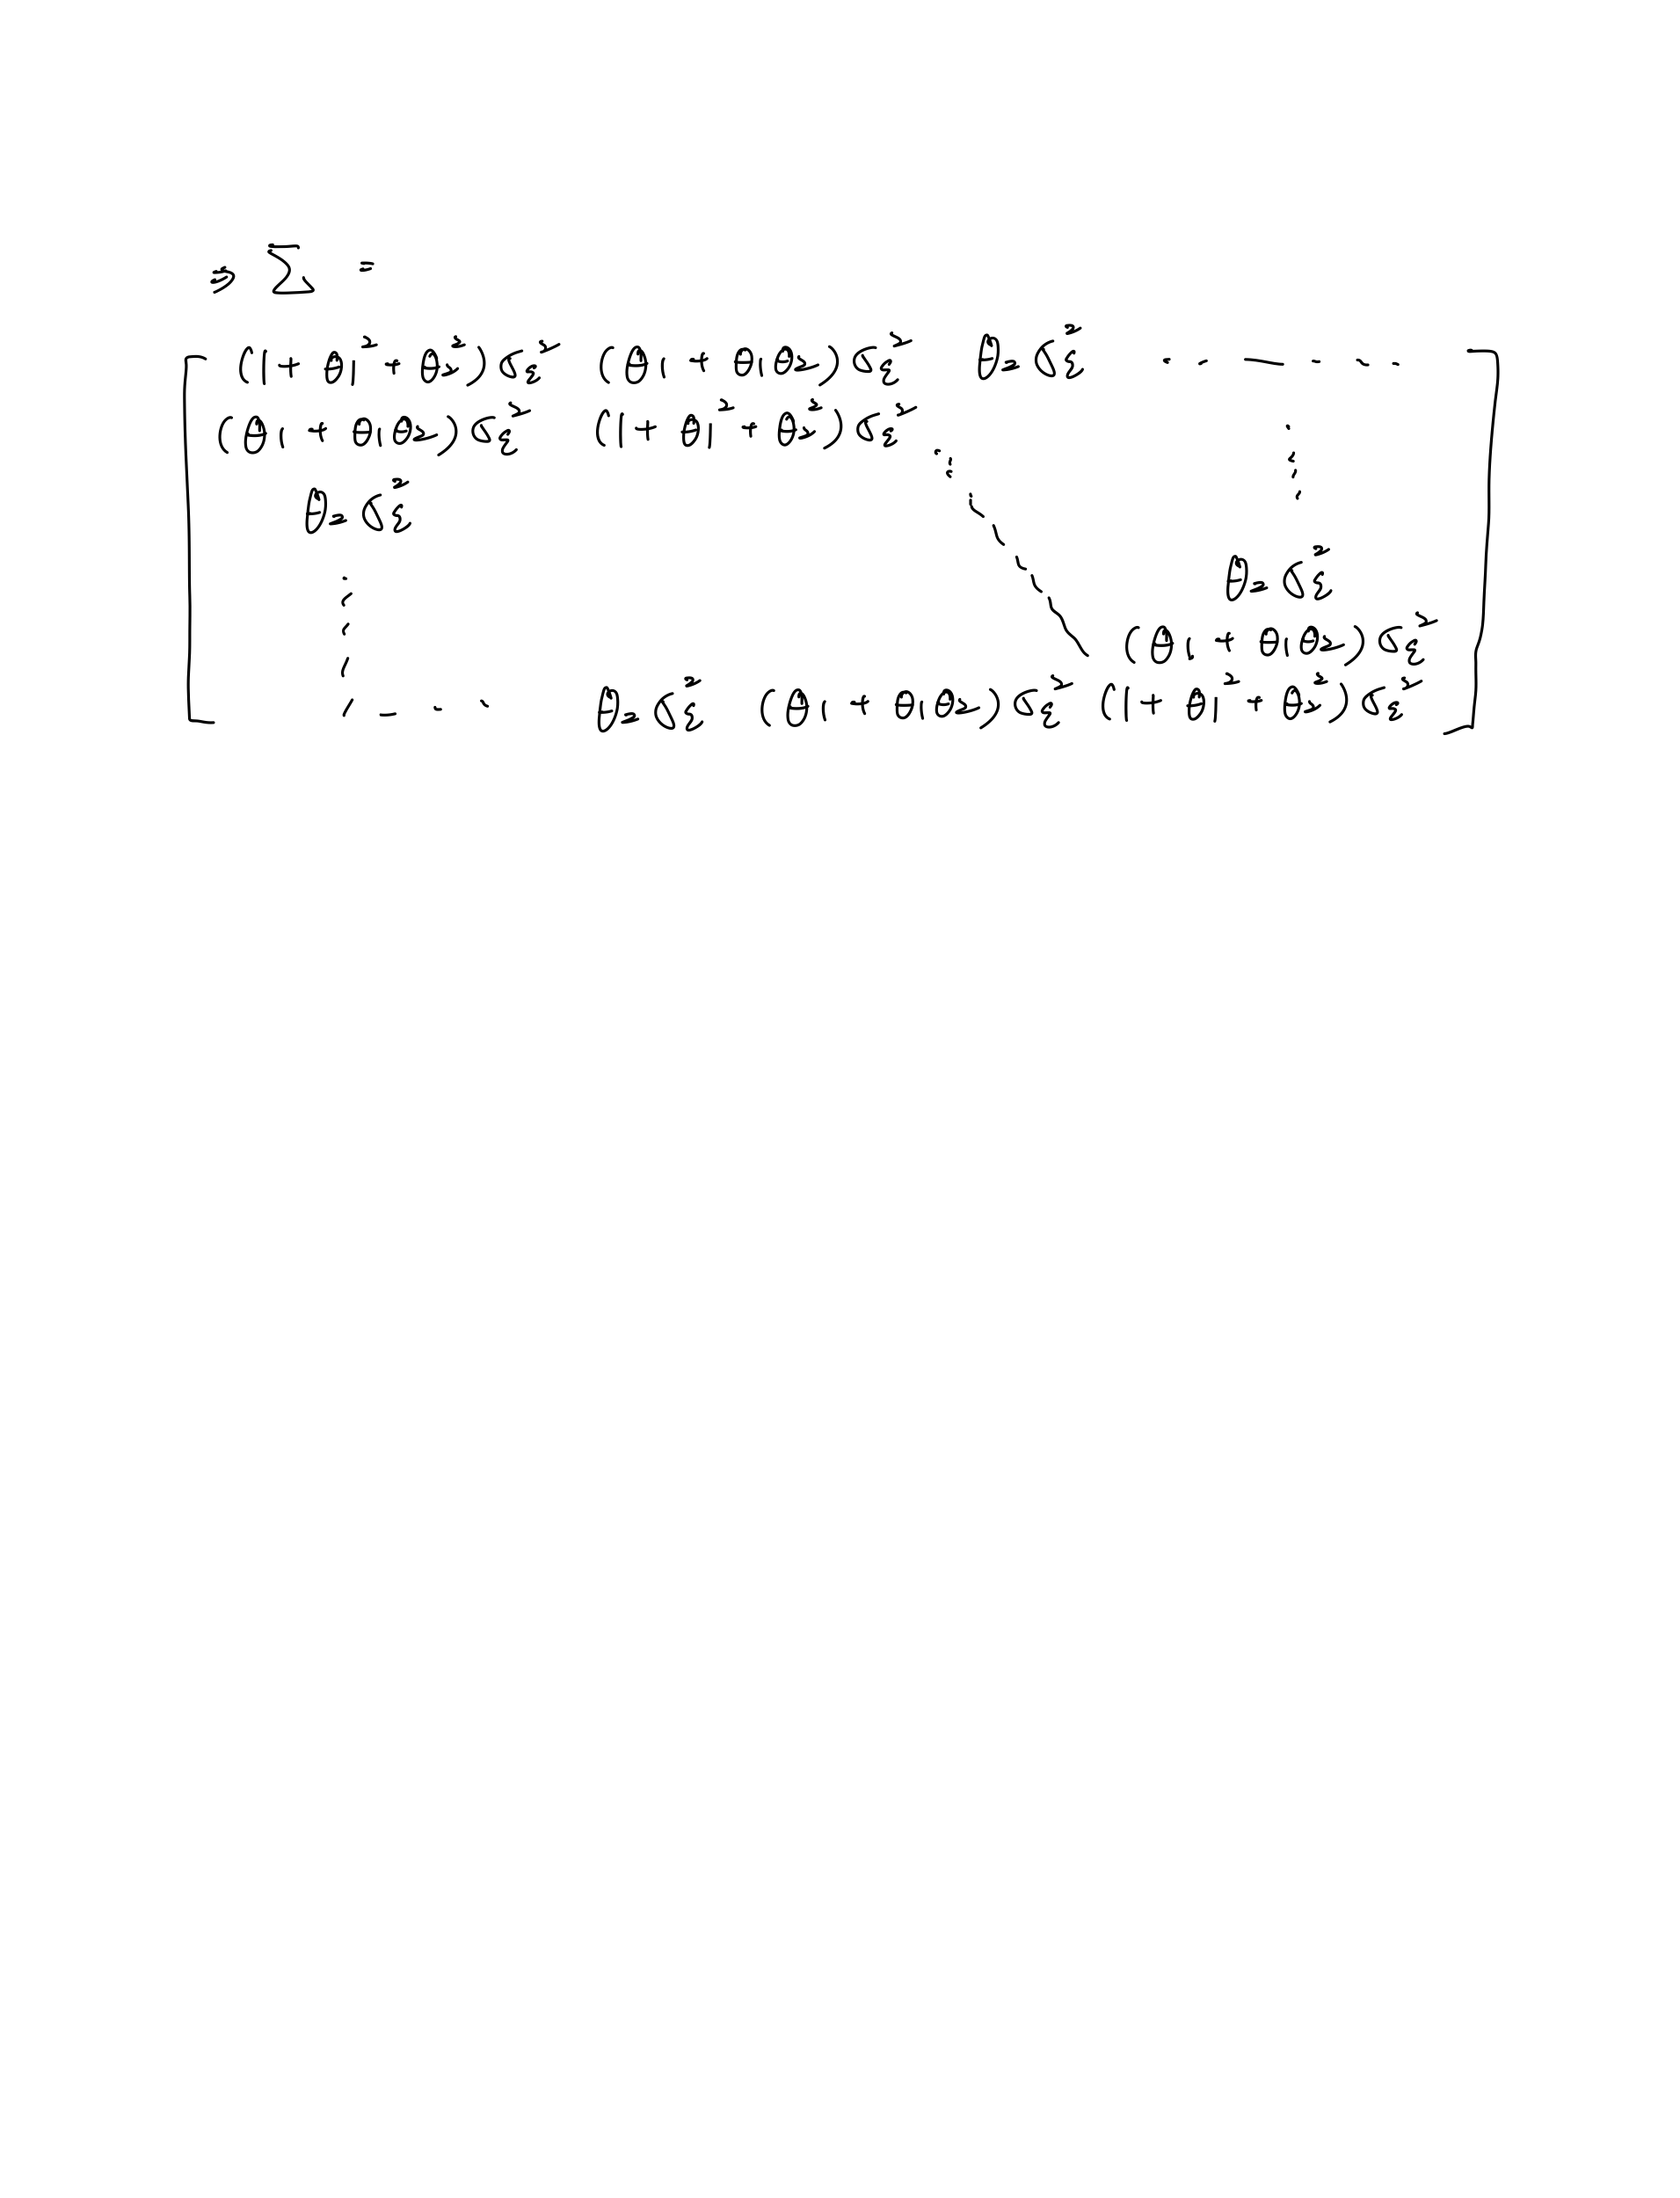 ⇒ Σ =
(1 + θ₁² + θ₂²)σ_ε² (θ₁ + θ₁θ₂)σ_ε² θ₂σ_ε² ......
(θ₁ + θ₁θ₂)σ_ε² (1 + θ₁² + θ₂²)σ_ε² ⋱ ⋮
θ₂σ_ε²
⋮ θ₂σ_ε²
(θ₁ + θ₁θ₂)σ_ε²
... θ₂σ_ε² (θ₁ + θ₁θ₂)σ_ε² (1 + θ₁² + θ₂²)σ_ε²